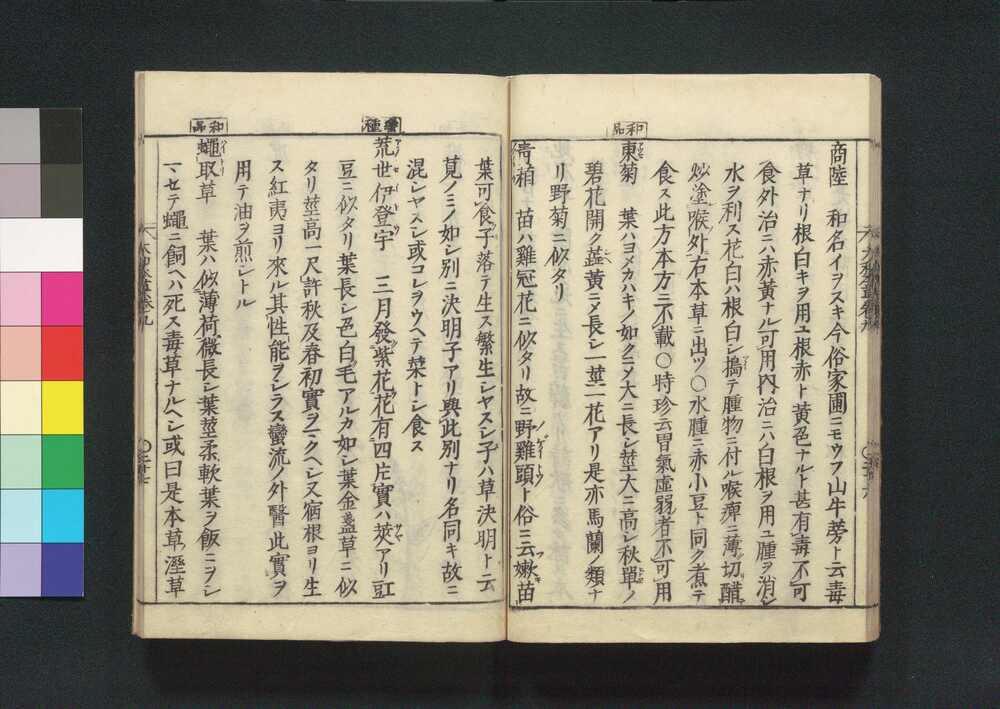 商陸　和名イヲスキ今俗家圃ニモウフ山牛旁ト云毒
草ナリ根ノ白キヲ用ユ根赤ト黄色ナルト甚有毒不可
食外治ニハ赤黄ナル可用内治ニハ白根ヲ用ユ腫ヲ消シ
水ヲ利ス花白ハ根白シ搗テ腫物ニ付ル喉痺ニ薄切醋
炒塗喉外右本草ニ出ツ〇水腫ニ赤小豆ト同ク煮テ
食ス此方本方ニ不載〇時珍云胃氣虚弱者不可用
和品
東菊　葉ハヨメカハキノ如クニメ大ニ長シ莖大ニ高シ秋單ノ
碧花開ク蕋黄ニメ長シ一莖一花アリ是亦馬蘭ノ類ナ
リ野菊ニ似タリ
青葙　苗ハ雞冠花ニ似タリ故ニ野雞頭ト俗ニ云嫩苗
葉可食子落テ生ス繁生シヤスシ子ハ草決明ト云
莧ノミノ如シ別ニ決明子アリ與此別ナリ名同キ故ニ
混シヤスシ或コレヲウヘテ菜トシ食ス
蠻種
荒世伊登宇　三月發紫花花有四片實ハ莢アリ豇
豆ニ似タリ葉長シ色白毛アルカ如シ葉金盞草ニ似
タリ莖高一尺許秋及春初實ヲマクヘシ又宿根ヨリ生
ス紅夷ヨリ來ル其性能ヲシラス蠻流ノ外醫此實ヲ
用テ油ヲ煎シトル
和品
蠅取草　葉ハ似薄荷微長シ葉莖柔軟葉ヲ飯ニヲシ
マセテ蠅ニ飼ヘハ死ス毒草ナルヘシ或曰是本草濕草